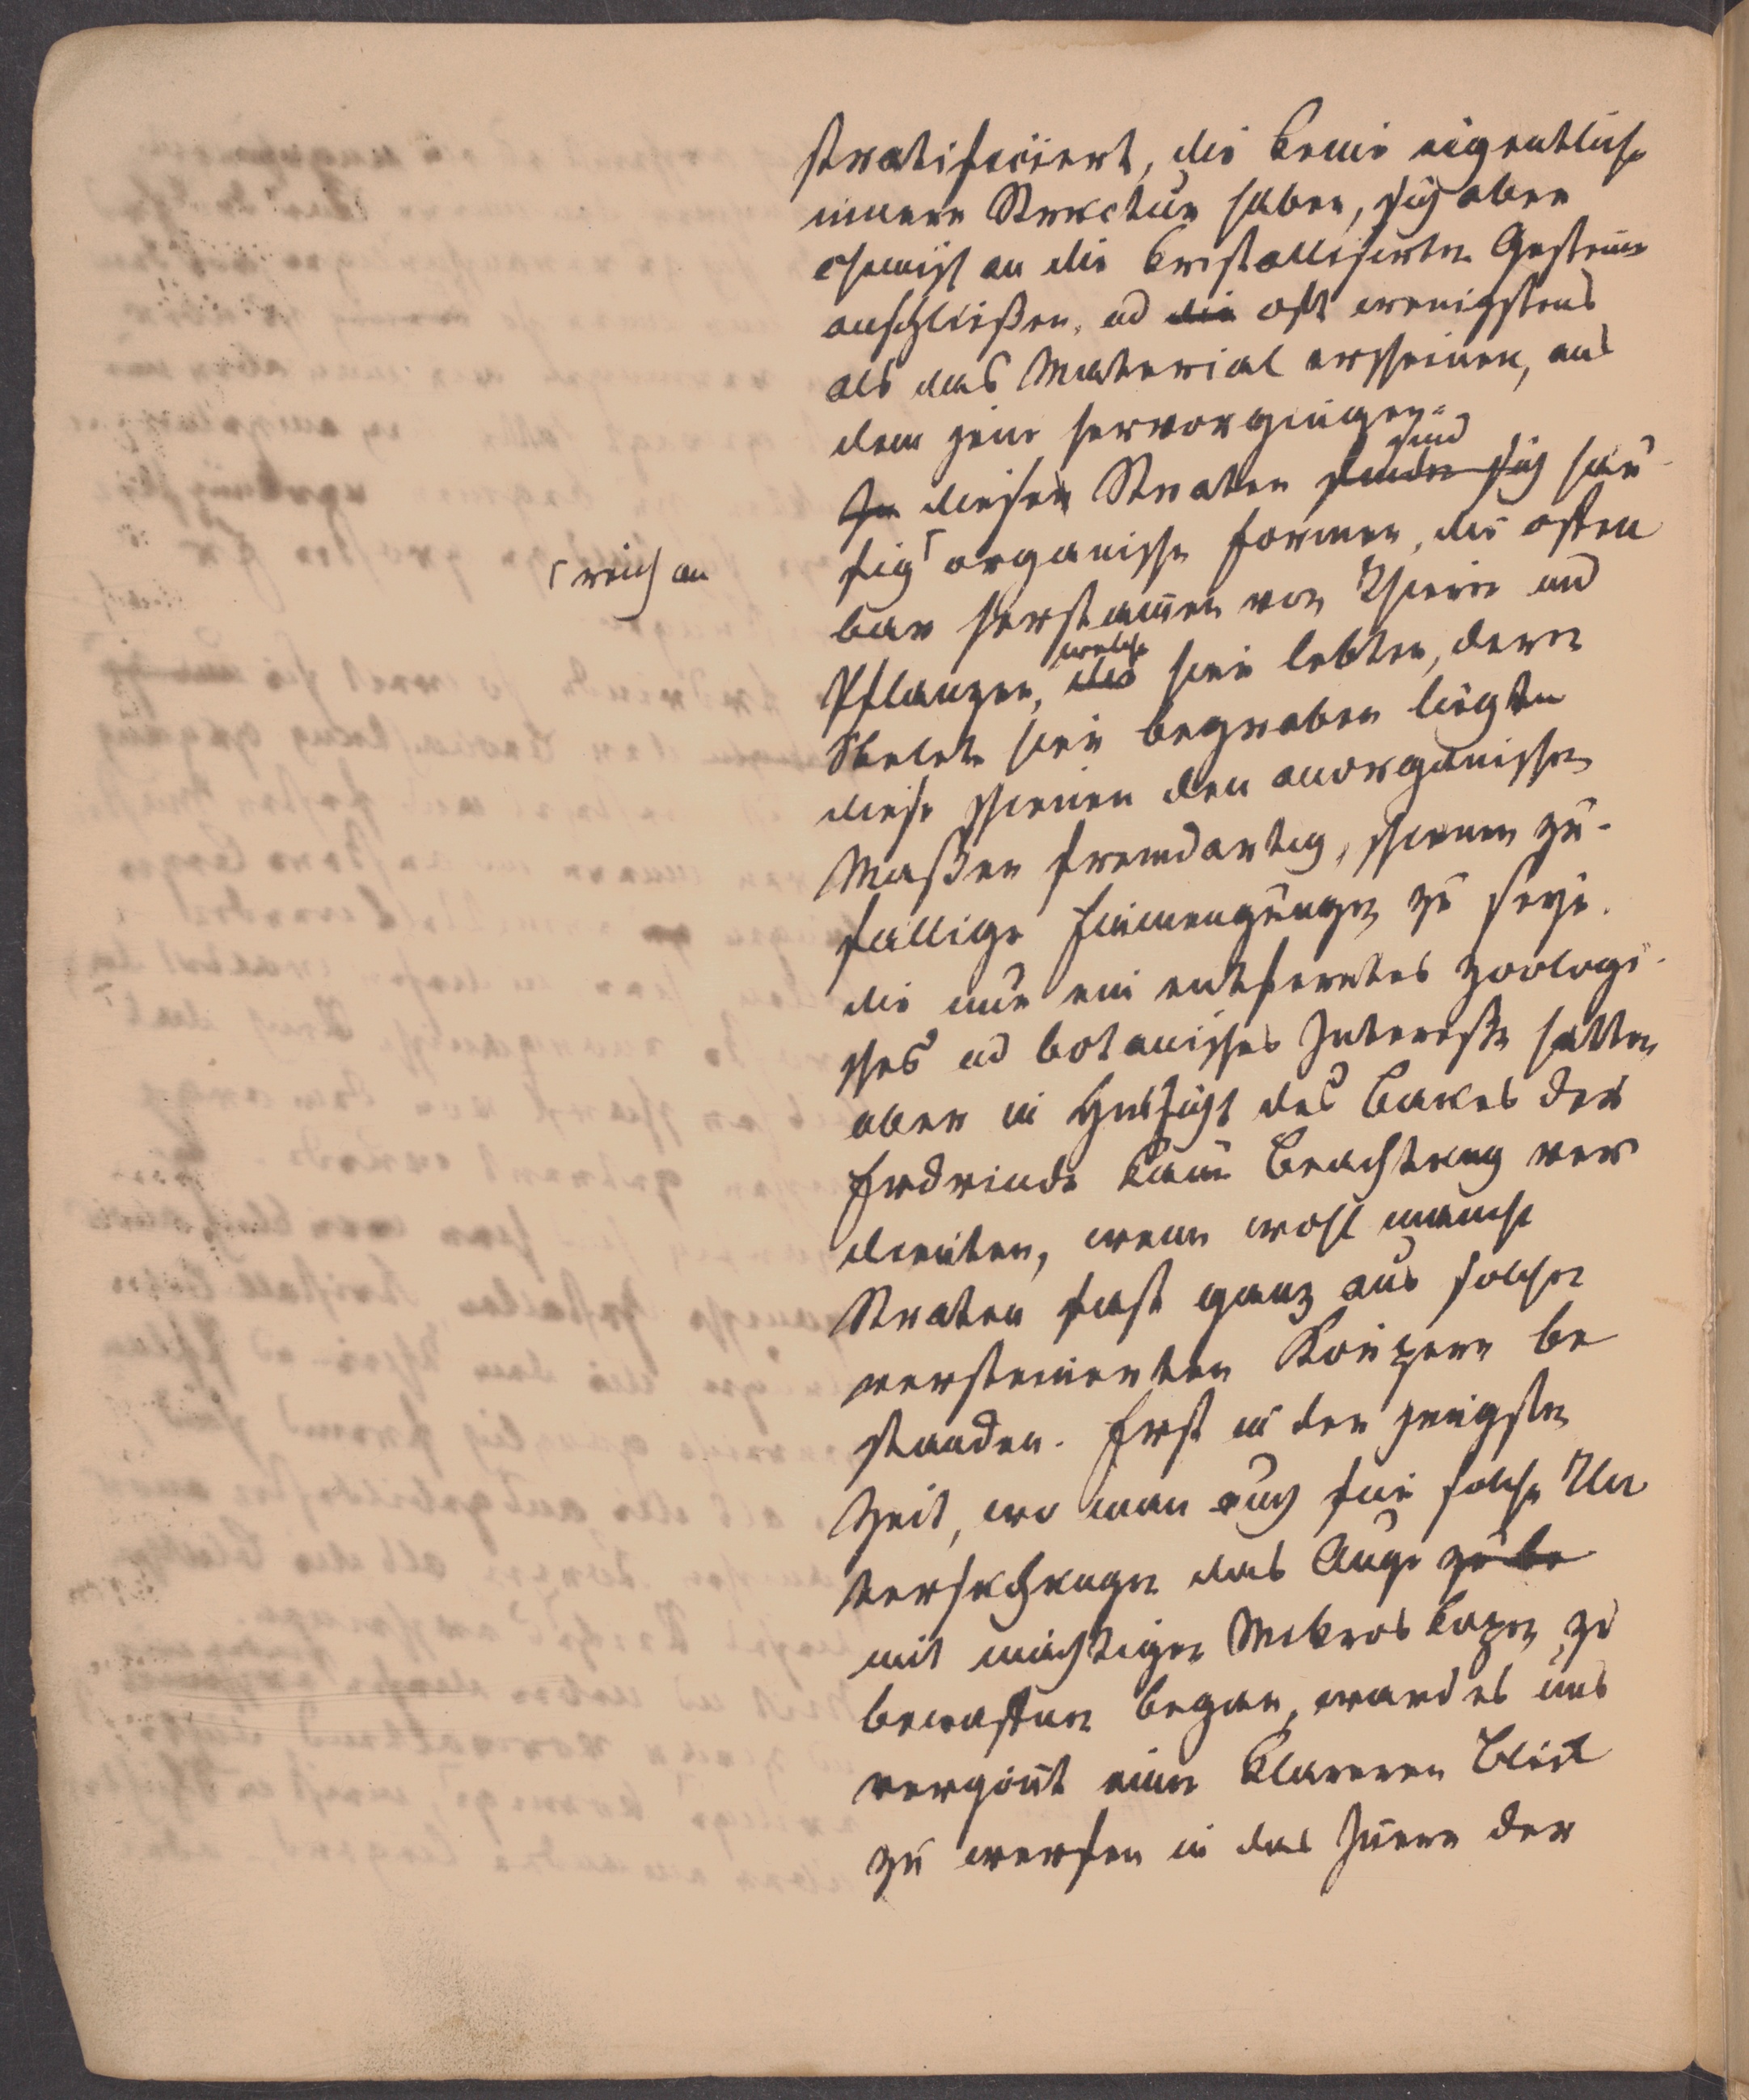 stratificiert, die keine eigentliche
innere Strucktur haben, sich aber
chemisch an die kristallisierten Gesteine
anschließen, ud die oft wenigstens
als das Material erscheinen, aus
dem jene hervorgingen.
sind
In diesen Straten finden sich häu-
fig ⌈ organische Formen, die offen
⌈ reich an
bar herstamen von Thieren und
welche
Pflanzen, die hier lebten, deren
Skelete hier begraben liegten
diese schienen den anorganischen
Maßen fremdartig, schienen zu-
fällige Einmengungen zu seyn.
die nur ein entferntes zoologi-
sches ud botanisches Intereße hatten
aber in Hinsicht des Baues der
Erdrinde kaum Beachtung ver
dienten, wenn wohl manche
Straten fast ganz aus solchen
versteinerten Körpern be
standen. Erst in der jüngsten
Zeit, wo man auch für solche Un
tersuchungen das Auge zu be
mit mächtigen Mikroskopen zu
bewaffnen began, ward es uns
vergönt einen klareren Blick
zu werfen in das Inere der